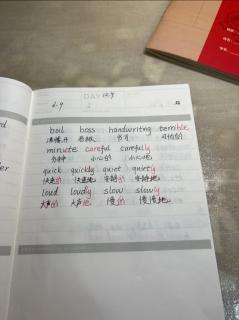 DAY
6.9
boil boss handwriting terrible
老板 书写 可怕的
minute careful carefully
分钟 小心的 小心地
quick quickly quiet quietly
快速的 快速地 安静的 安静地
loud loudly slow slowly
大声的 大声地 慢的 慢慢地